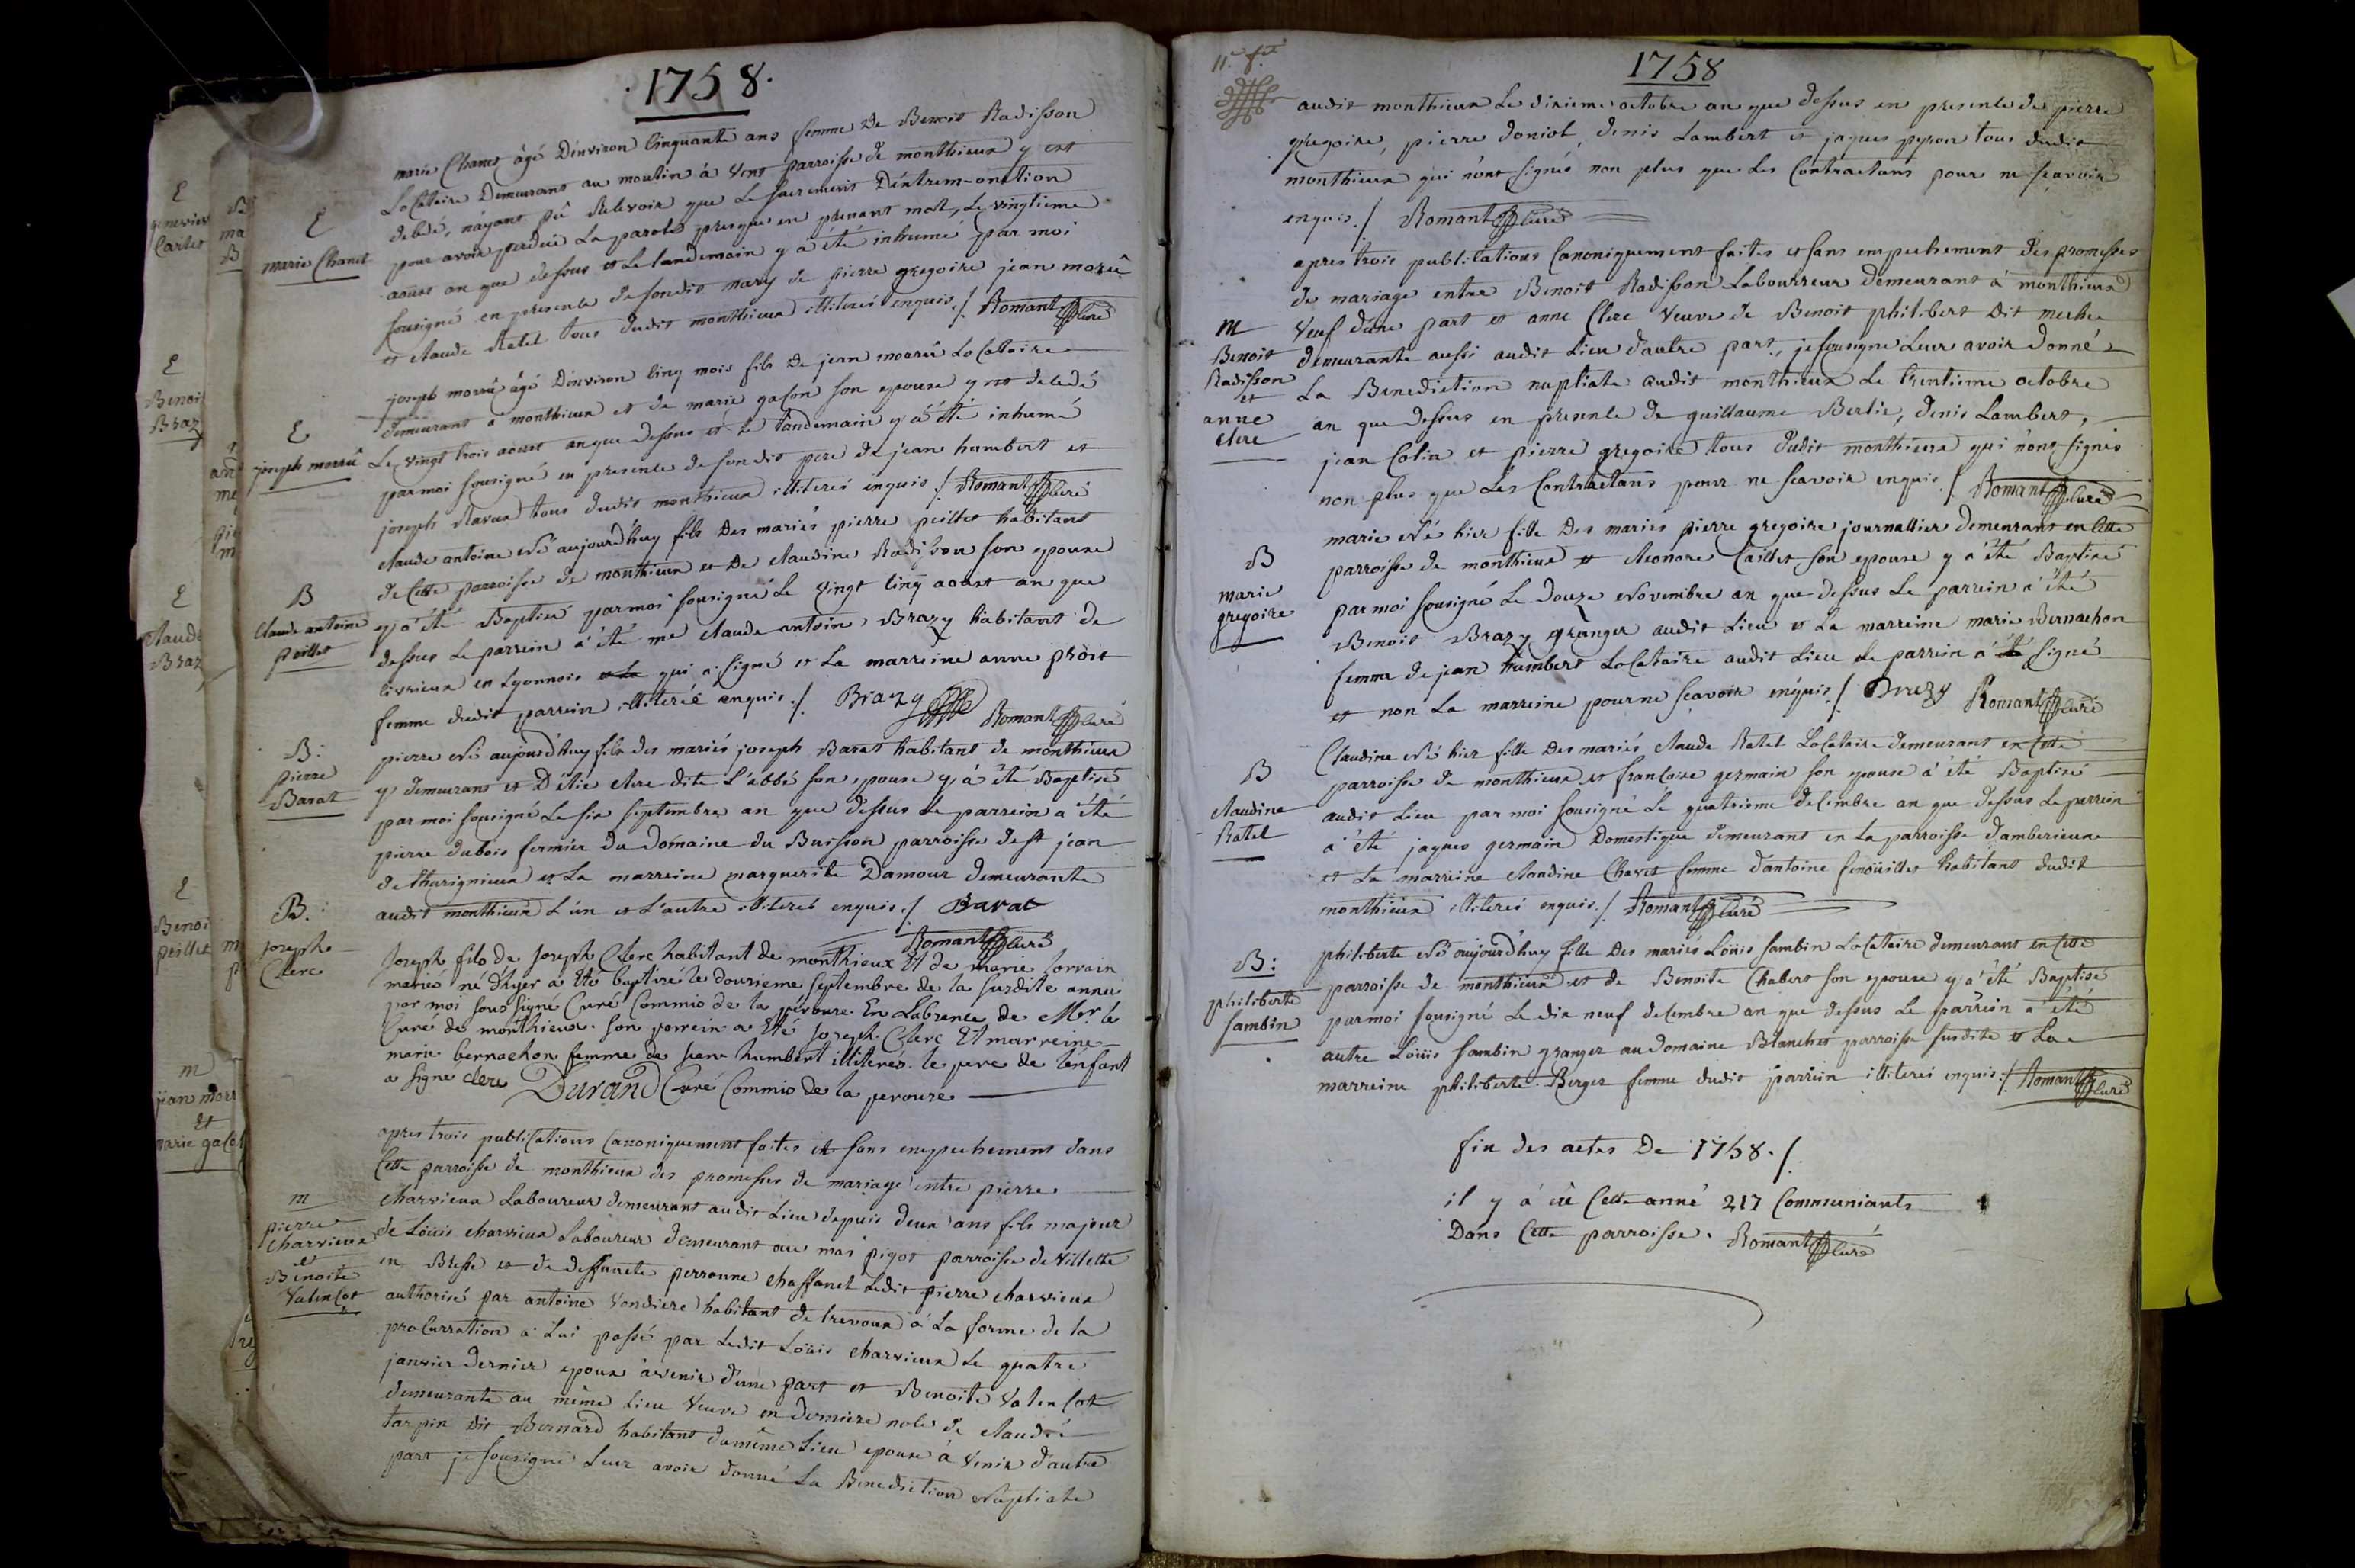 1758.
E
marie Chanet
marie Chanet âgé D'environ Cinquante ans femme De Benoit Radisson
Locataire Demeurant au moulin à Vent parroisse de monthieux y est
decedé, n'ayant pû Recevoir que Le Sacrement D'extrem-onction
pour avoir perdue La parole presque en prenant mal, Le vingtieme
aoust an que dessus et Le landemain y a été inhumé par moi
sousigné en presence de sondit mary de pierre gregoire jean moreü
et claude Ratel tous dudit monthieux illiterés enquis ./. Romant Curé
E
joseph morrû
joseph morrü âgé D'environ cinq mois fils De jean morrü Locataire
demeurant à monthieux et de marie gacon son epouse y est decedé
Le vingt trois aoust an que dessus et le landemain y a été inhumé
par moi sousigné en presence de sondit pere de jean humbert et
joseph Ravux tous dudit monthieux illiterés enquis ./. Romant Curé
B
Claude antoine
peillet
claude antoine Né aujourd'huy fils Des mariés pierre peillet habitant
de Cette parroisse de monthieux et De claudine Radisson son epouse
y a été Baptisé par moi sousigné Le Vingt Cinq aoust an que
dessus Le parrein a été me claude antoine Brazy habitant de
civrieux en Lyonnois et La qui a signé et La marreine anne proit
femme dudit parrein illiterée enquis ./. Brazy
Romant Curé
B:
pierre
Barat
pierre Né aujourd'huy fils des mariés joseph Barat habitant de monthieux
y demeurant et D'Etie Clere dite L'abbé son epouse y a été Baptisé
par moi sousigné Le six septembre an que dessus Le parrein a été
pierre dubois fermier du Domaine du Buisson parroisse de st jean
de thurignieux et La marreine marguerite Damour demeurante
audit monthieux L'un et L'autre illiterés enquis ./. Barat
Romant Curé
B.
joseph
Clerc
Joseph fils de Joseph Clerc habitant de monthieux Et de marie lorrain
mariés né d'hyer a Eté baptisé le douzieme septembre de la susdite année
par moi sous signé Curé Commis de la perouze En Labsence de Mr. le
Curé de monthieux. Son parrein a Eté Joseph Clerc Et marreine
marie bernachon femme de Jean humbert illiterés. le pere de l'enfant
a signé clerc Durand Curé Commis de la perouze
m
pierre
charvieux
et
Benoite
Valencot
apres trois publications Canoniquement faites et sans empechement dans
Cette parroisse de monthieux des promesses de mariage entre pierre
charvieux Laboureur demeurant audit Lieu depuis deux ans fils majeur
de Loüis charvieux Laboureur demeurant au mas pigot parroisse de Villette
en Bresse et de deffuncte perronne chaffanet Ledit pierre charvieux
authorisé par antoine Vondiere habitant de trevoux à La forme de la
procurration à Lui passé par Ledit Loüis charvieux Le quatre
janvier dernier epoux à venir d'une part et Benoite Valencot
demeurante au même lieu Veuve en derniere noce de claude
tarpin dit Bernard habitant du même Lieu epouse à Venir d'autre
part je sousigné Leur avoir donné La Benediction Nuptiale
1758
audit monthieux Le dixieme octobre an que dessus en presence de pierre
gregoire, pierre doniol, denis Lambert et jaques pyron tous dudit
monthieux qui n'ont signés non plus que Les Contractans pour ne sçavoir
enquis ./. Romant Curé
m
Benoit
Radisson
et
anne
clere
apres trois publications Canoniquement faites et sans empechement des promesses
de mariage entre Benoit Radisson Labourreur demeurant à monthieux
Veuf d'une part et anne Clere Veuve de Benoit philibert dit
demeurante aussi audit Lieu d'autre part, je sousigné Leur avoir donné
La Benediction nuptiale audit monthieux Le trentieme octobre
an que dessus en presence de guillaume Berlie, denis Lambert,
jean Colin et pierre gregoire tous dudit monthieux qui n'ont signés
non plus que Les Contractans pour ne scavoir enquis ./. Romant Curé
B
marie
gregoire
marie Né hier fille Des mariés pierre gregoire journallier demeurant en Cette
parroisse de monthieux et eleonore Caillet son epouse y a été Baptisé
par moi sousigné Le Douze Novembre an que dessus Le parrein a été
Benoit Brazy granger audit Lieu et La marreine marie Bernachon
femme de jean humbert Locataire audit Lieu Le parrein a été signé
et non La marreine pour ne sçavoir enquis ./. Brazy Romant Curé
B
claudine
Ratel
Claudine Né hier fille Des mariés claude Ratel Locataire demeurant en Cette
parroisse de monthieux et françoise germain son epouse a été Baptisé
audit Lieu par moi sousigné Le quatrieme decembre an que dessus Le parrein
a été jaques germain Domestique demeurant en La parroisse d'amberieux
et La marreine claudine Chavet femme d'antoine fenoüillet habitant dudit
monthieux illiterés enquis ./. Romant Curé
B:
philiberte
sambin
philiberte Né aujourd'huy fille Des mariés Loüis sambin Locataire demeurant en Cette
parroisse de monthieux et de Benoite Chabert son epouse y a été Baptisé
par moi sousigné Le dix neuf decembre an que dessus Le parrein a été
autre Loüis sambin granger au domaine Blanchet parroisse susdite et La
marreine philiberte Berger femme dudit parrein illiterés enquis ./. Romant Curé
fin des actes De 1758 ./.
il y a eü Cette anné 217 Communiants
Dans Cette parroisse. Romant Curé